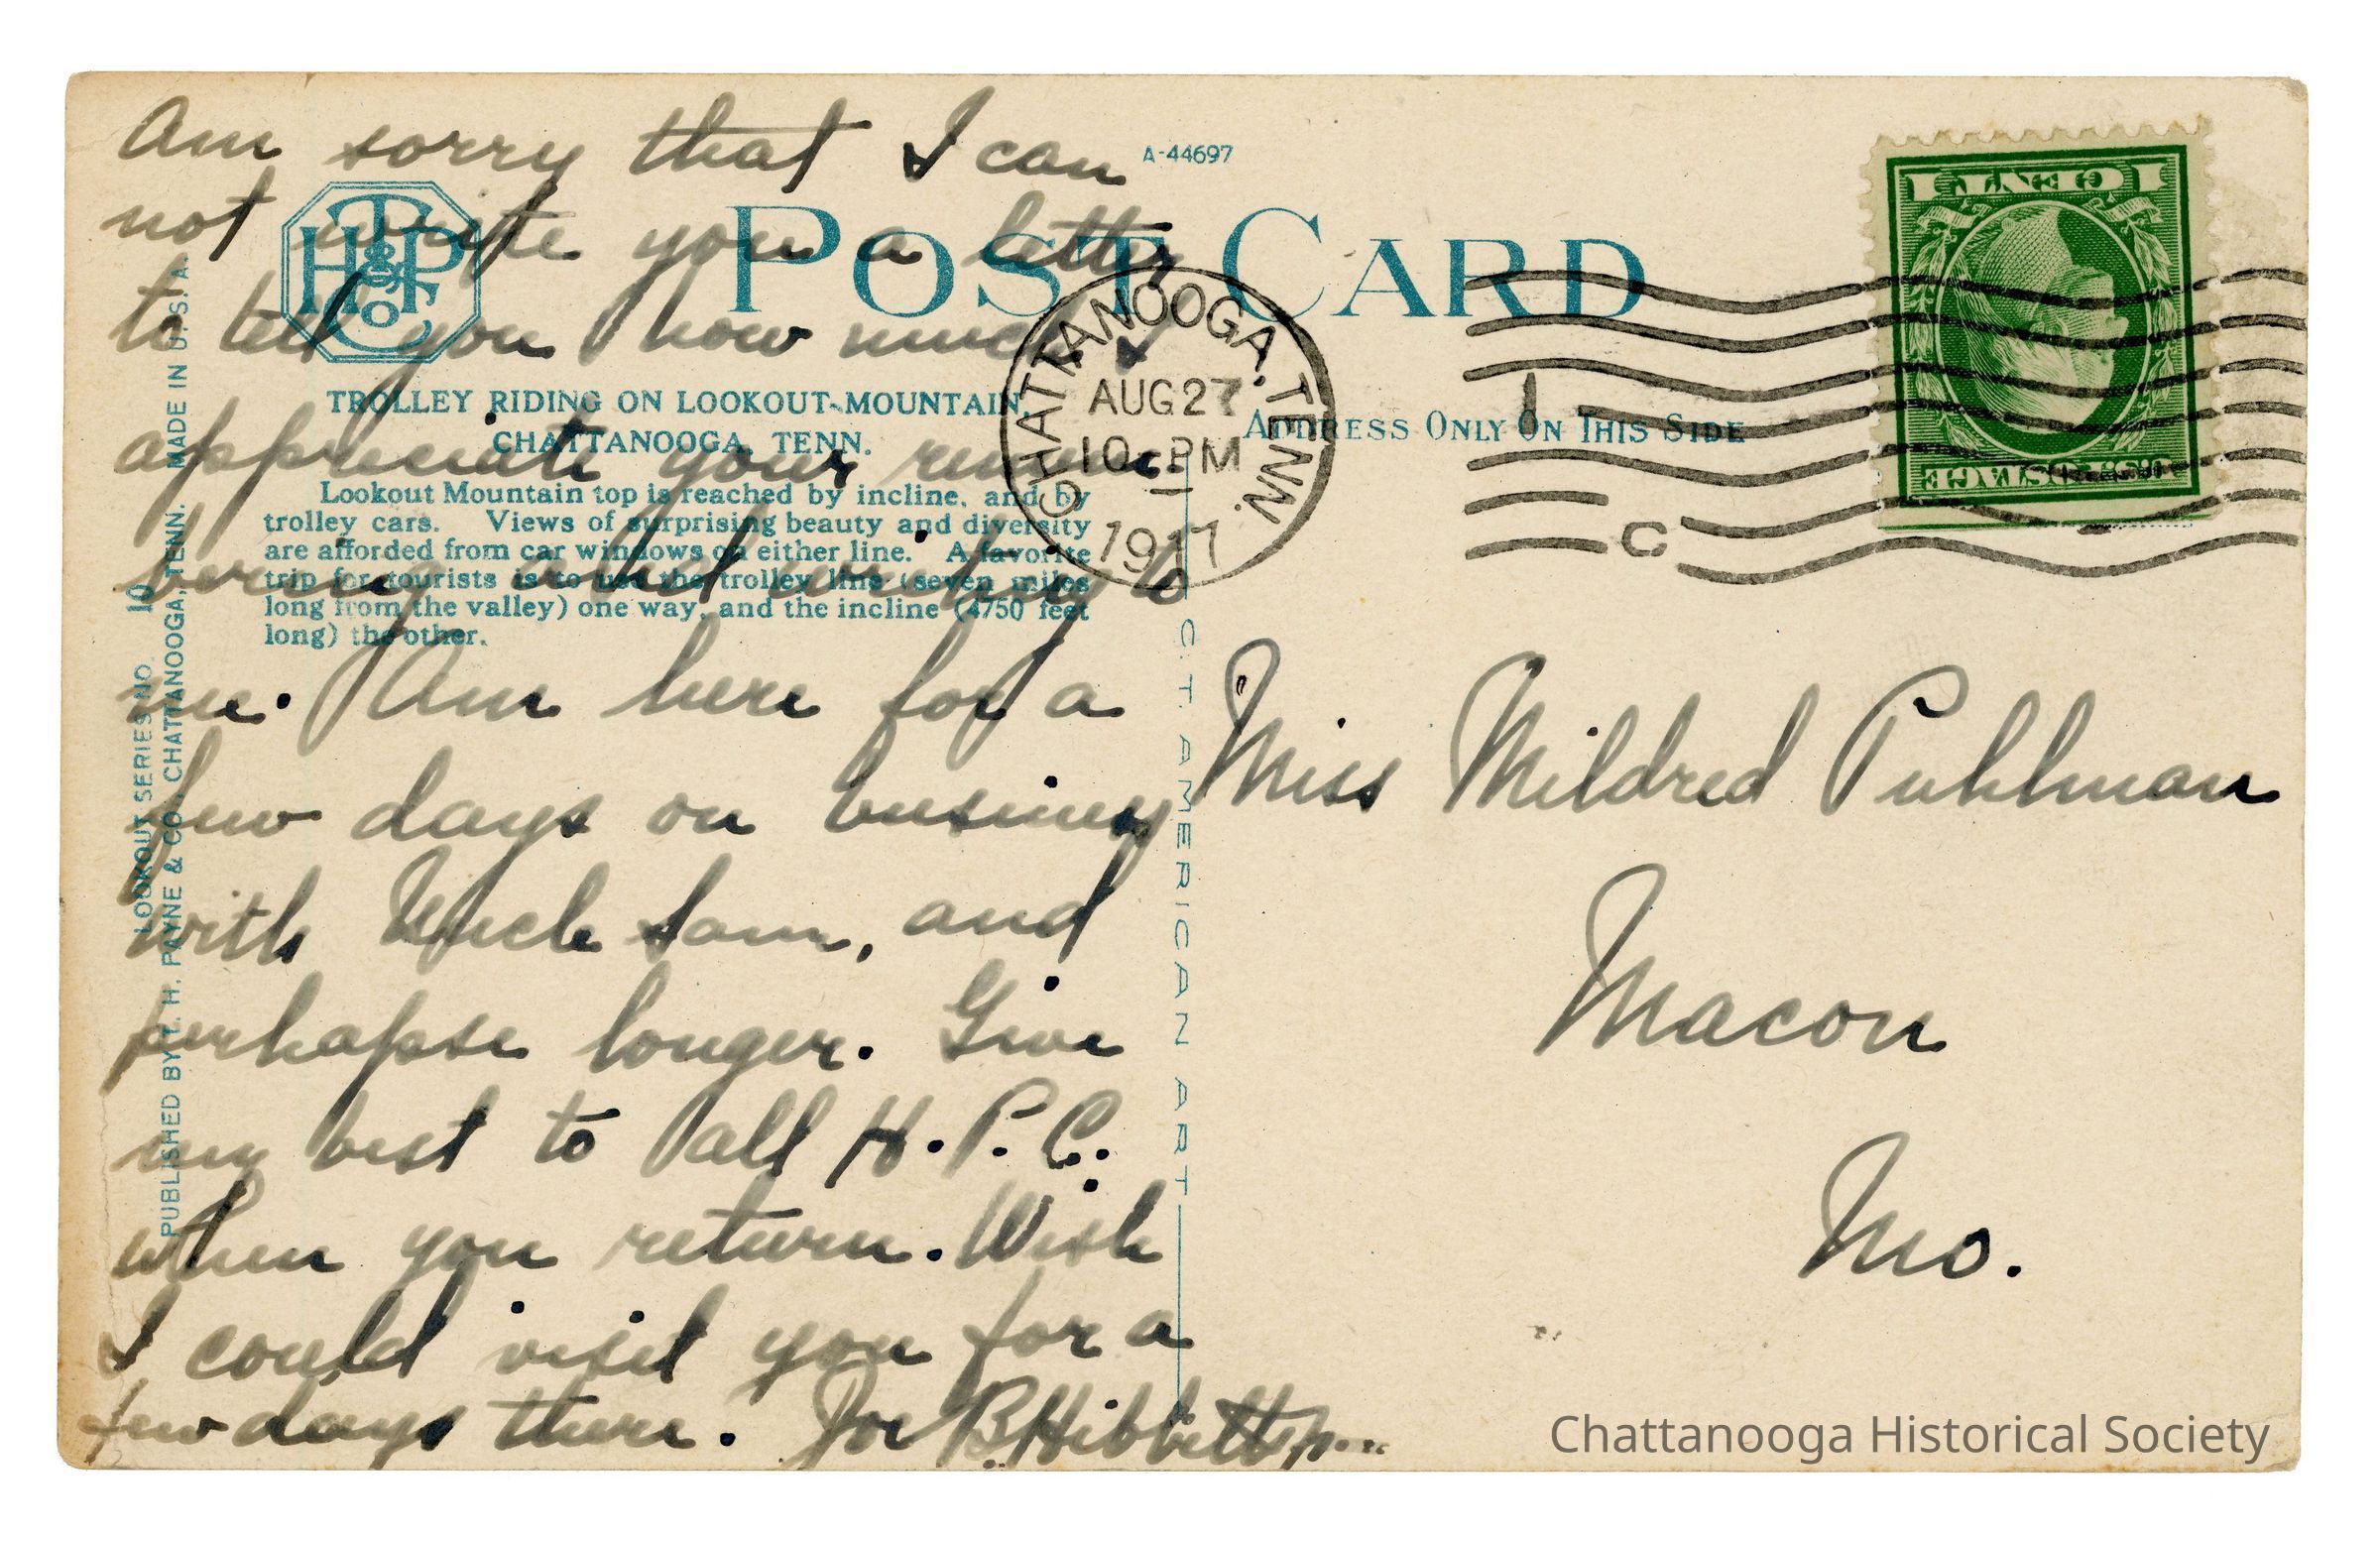 Am sorry that I can
not write you a letter
to tell you how much I
appreciate your remem-
bering and writing to
me. Am here for a
few days on business
with Uncle Sam, and
perhapse longer. Give
my best to all H. P. C.
when you return. Wish
I could visit you for a
few days there. Joe B. Hibbitts
A-44697
POST CARD
THP & Co
TROLLEY RIDING ON LOOKOUT MOUNTAIN,
CHATTANOOGA, TENN.
Lookout Mountain top is reached by incline, and by
trolley cars. Views of surprising beauty and diversity
are afforded from car windows on either line. A favorite
trip for tourists is to use the trolley line (seven miles
long from the valley) one way, and the incline (4750 feet
long) the other.
LOOKOUT SERIES NO. 10
PUBLISHED BY T. H. PAYNE & CO., CHATTANOOGA, TENN. MADE IN U. S. A.
C. T. AMERICAN ART
CHATTANOOGA, TENN.
AUG 27
10 - PM
1917
1
C
ADDRESS ONLY ON THIS SIDE
U.S. POSTAGE
1 CENT 1
Miss Mildred Puhlman
Macon
Mo.
Chattanooga Historical Society